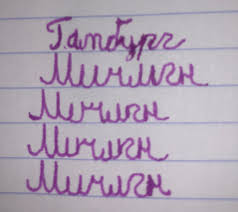 Гамбург
Мичиган
Мичиган
Мичиган
Мичиган